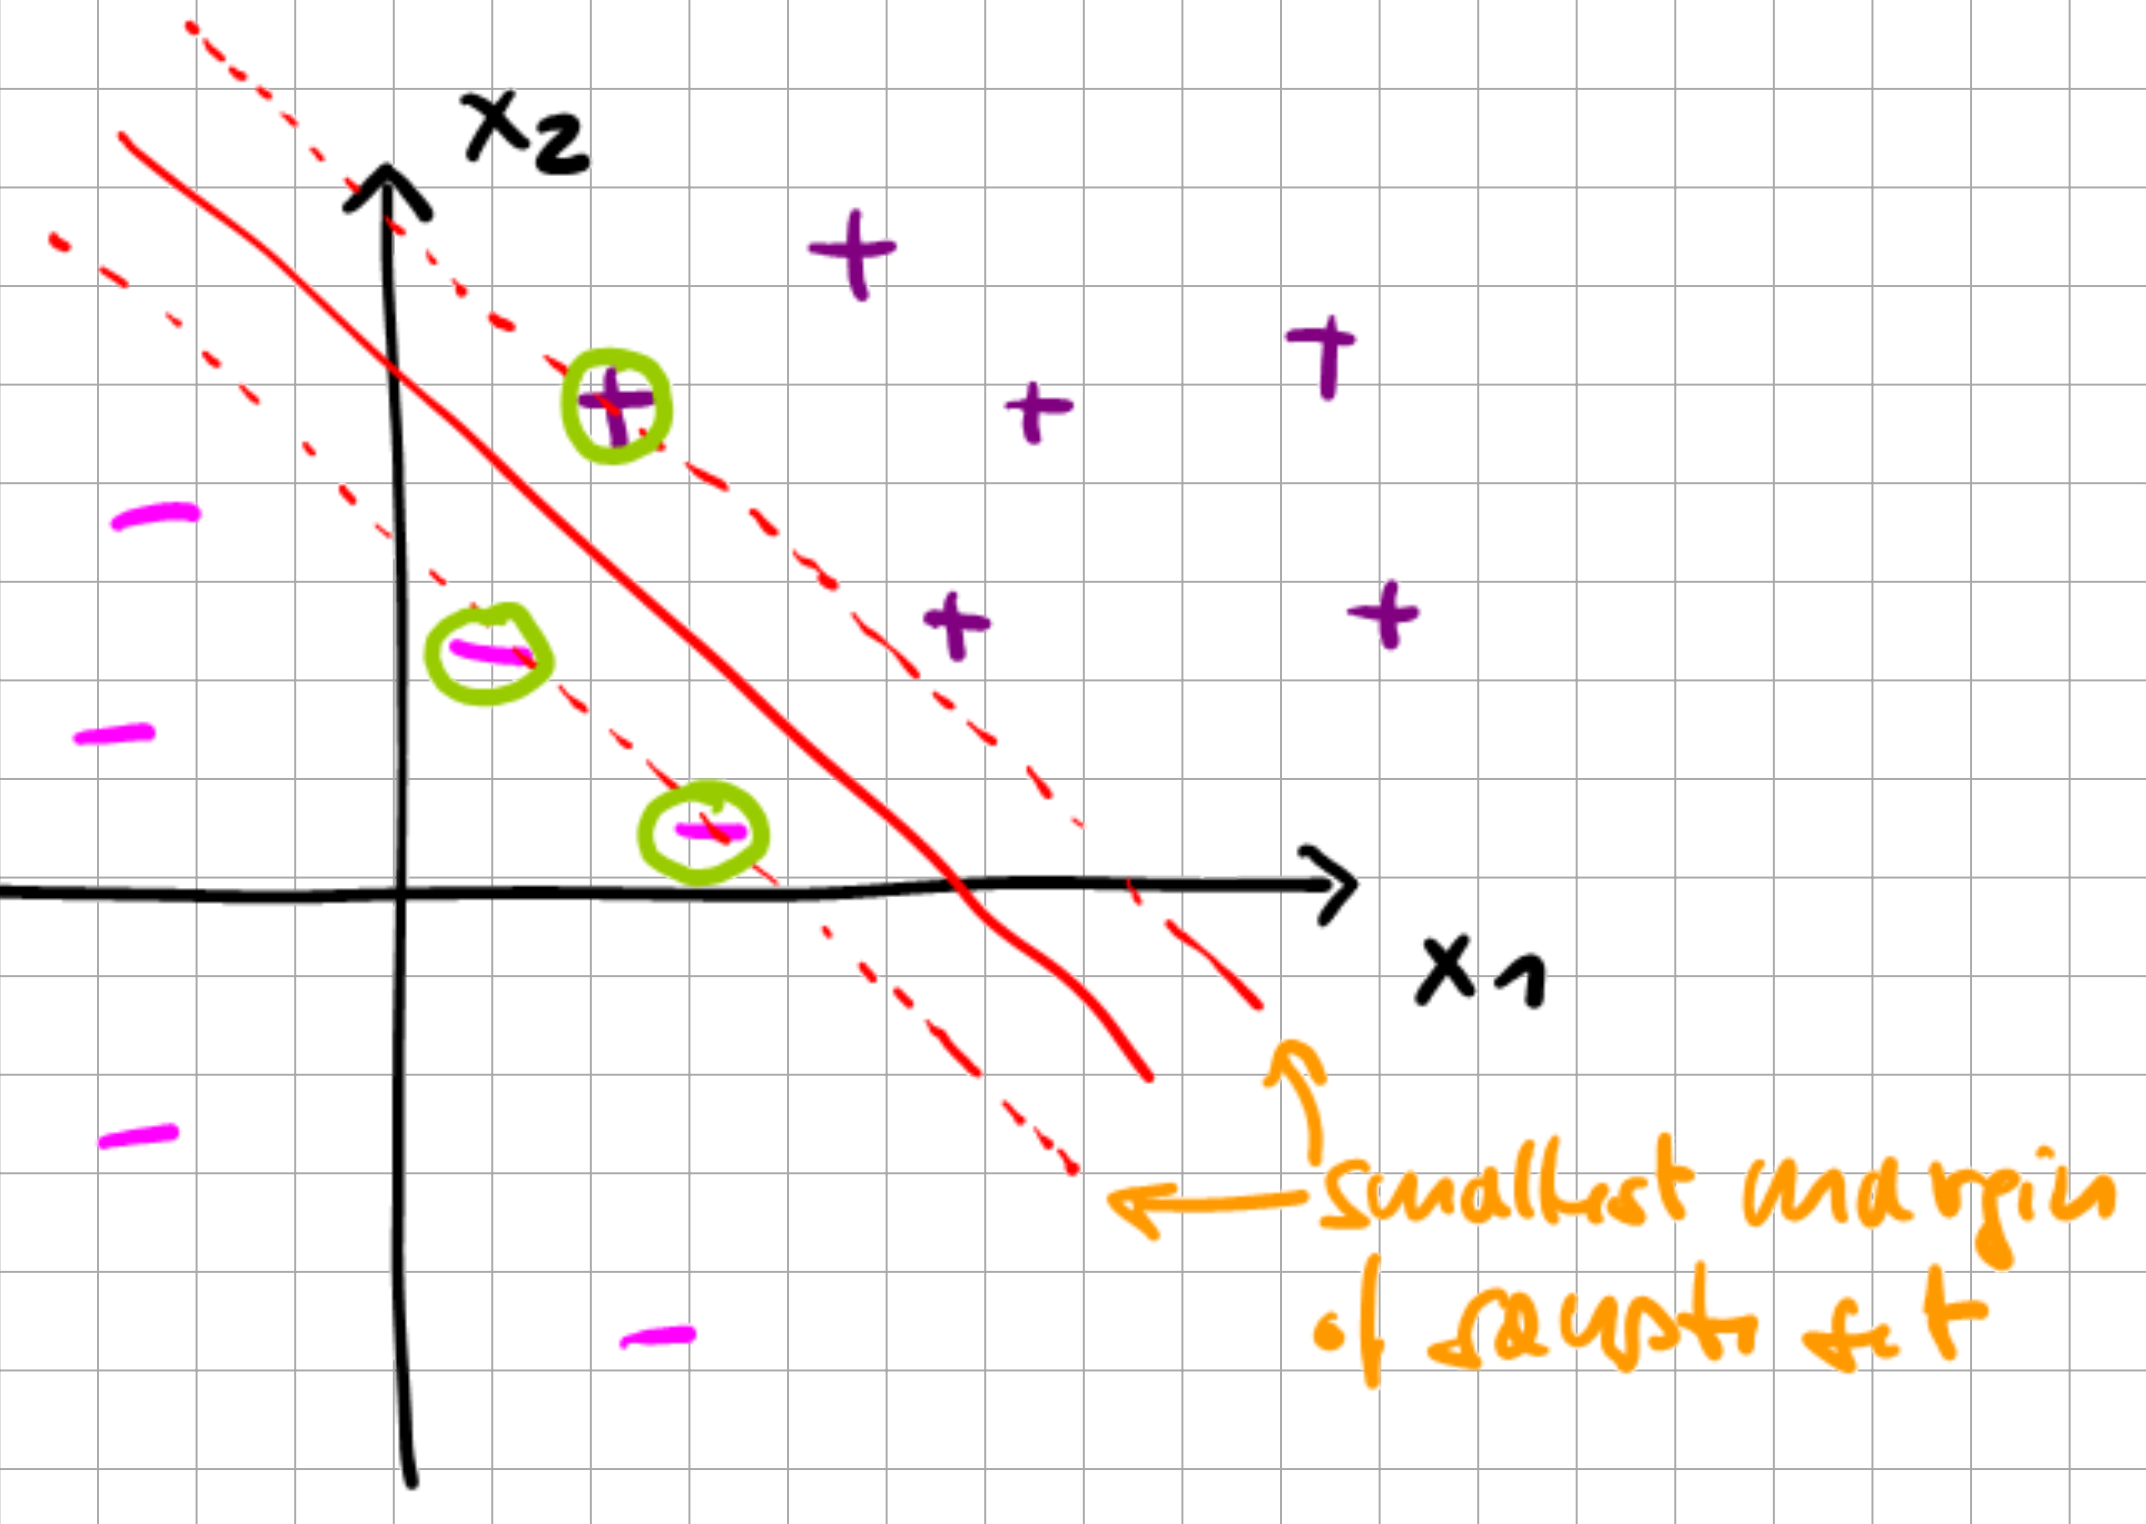 x2
x1
smallest margin
of set